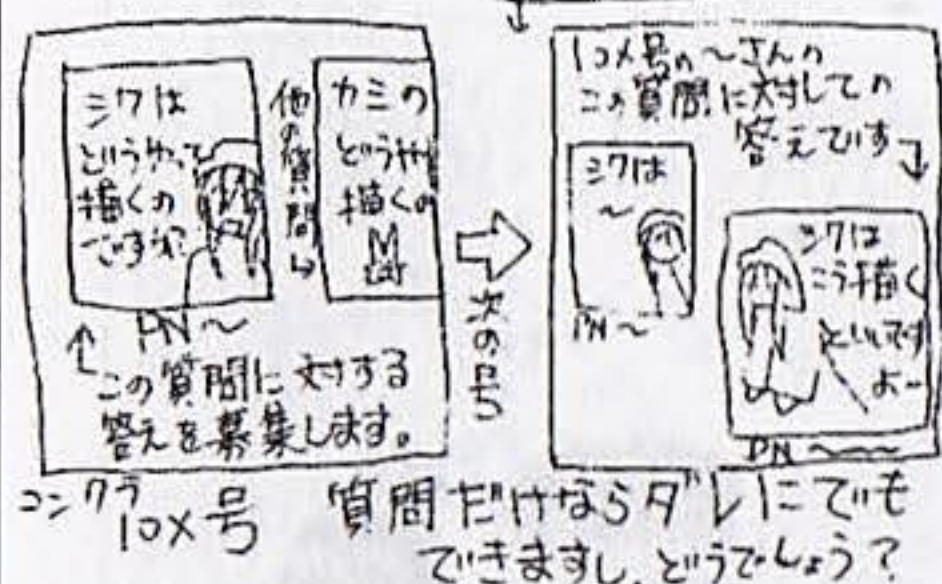 シワは
どうやって
描くの
ですか?
PN〜
他の質問
カミの
どうや
描くの
この質問に対する
答えを募集します。
コンクラ
10×号
次の号
10×号の〜さんの
この質問に対しての
答えです
シワは
〜
PN〜
シワは
こう描く
といいです
よー
PN〜〜〜
質問だけならダレにでも
できますし、どうでしょう?